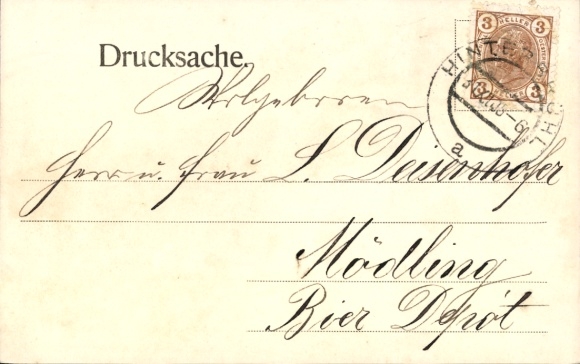 Drucksache.
3 HELLER 3
3 3
HINTERBRÜHL
a
Wolgeboren
Herr u. Frau L. Deisenhofer
Mödling
Bier Depôt